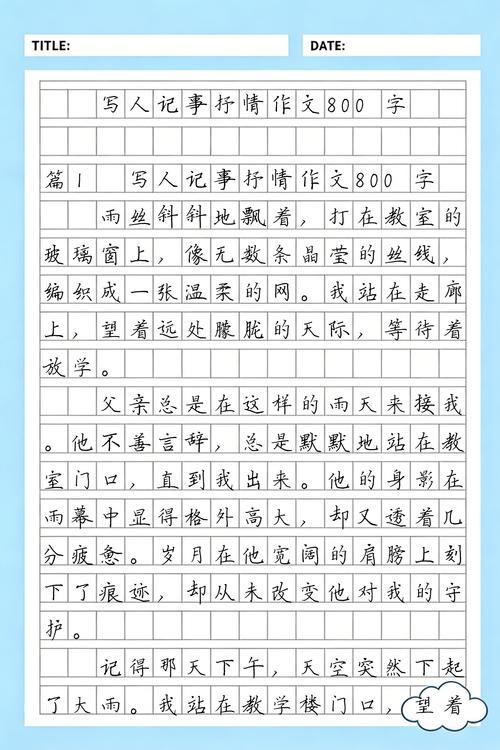 TITLE:
DATE:
写人记事抒情作文800 字
篇1 写人记事抒情作文800 字
雨丝斜斜地飘着，打在教室的
玻璃窗上，像无数条晶莹的丝线，
编织成一张温柔的网。我站在走廊
上，望着远处朦胧的天际，等待着
放学。
父亲总是在这样的雨天来接我
。他不善言辞，总是默默地站在教
室门口，直到我出来。他的身影在
雨幕中显得格外高大，却又透着几
分疲惫。岁月在他宽阔的肩膀上刻
下了痕迹，却从未改变他对我的守
护。
记得那天下午，天空突然下起
了大雨。我站在教学楼门口，望着